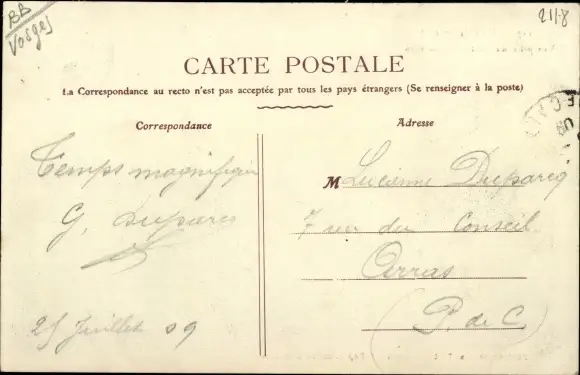 BB
Vosges
2118
CARTE POSTALE
La Correspondance au recto n'est pas acceptée par tous les pays étrangers (Se renseigner à la poste)
Correspondance
Adresse
Temps magnifique
G. Duparcq
25 Juillet 09
M Lucienne Duparcq
7 rue du Conseil
Arras
P. de C.